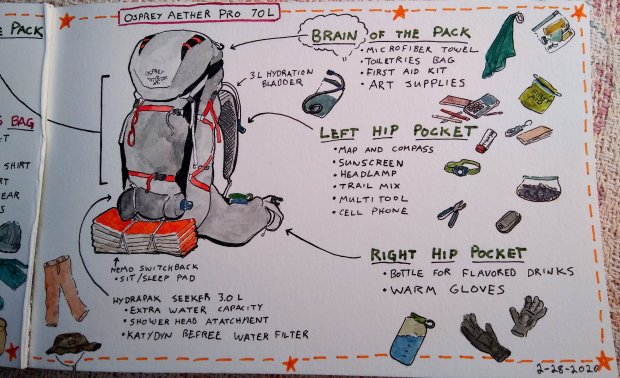 E PACK
OSPREY AETHER PRO 70L
BRAIN OF THE PACK
• MICROFIBER TOWEL
• TOILETRIES BAG
• FIRST AID KIT
• ART SUPPLIES
3L HYDRATION
BLADDER
FIRST
AID
S BAG
LEFT HIP POCKET
• MAP AND COMPASS
• SUNSCREEN
• HEADLAMP
• TRAIL MIX
• MULTITOOL
• CELL PHONE
SHIRT
EAR
RIGHT HIP POCKET
• BOTTLE FOR FLAVORED DRINKS
• WARM GLOVES
NEMO SWITCHBACK
• SIT/SLEEP PAD
HYDRAPAK SEEKER 3.0 L
• EXTRA WATER CAPACITY
• SHOWER HEAD ATATCHMENT
• KATYDYN BEFREE WATER FILTER
2-28-2020